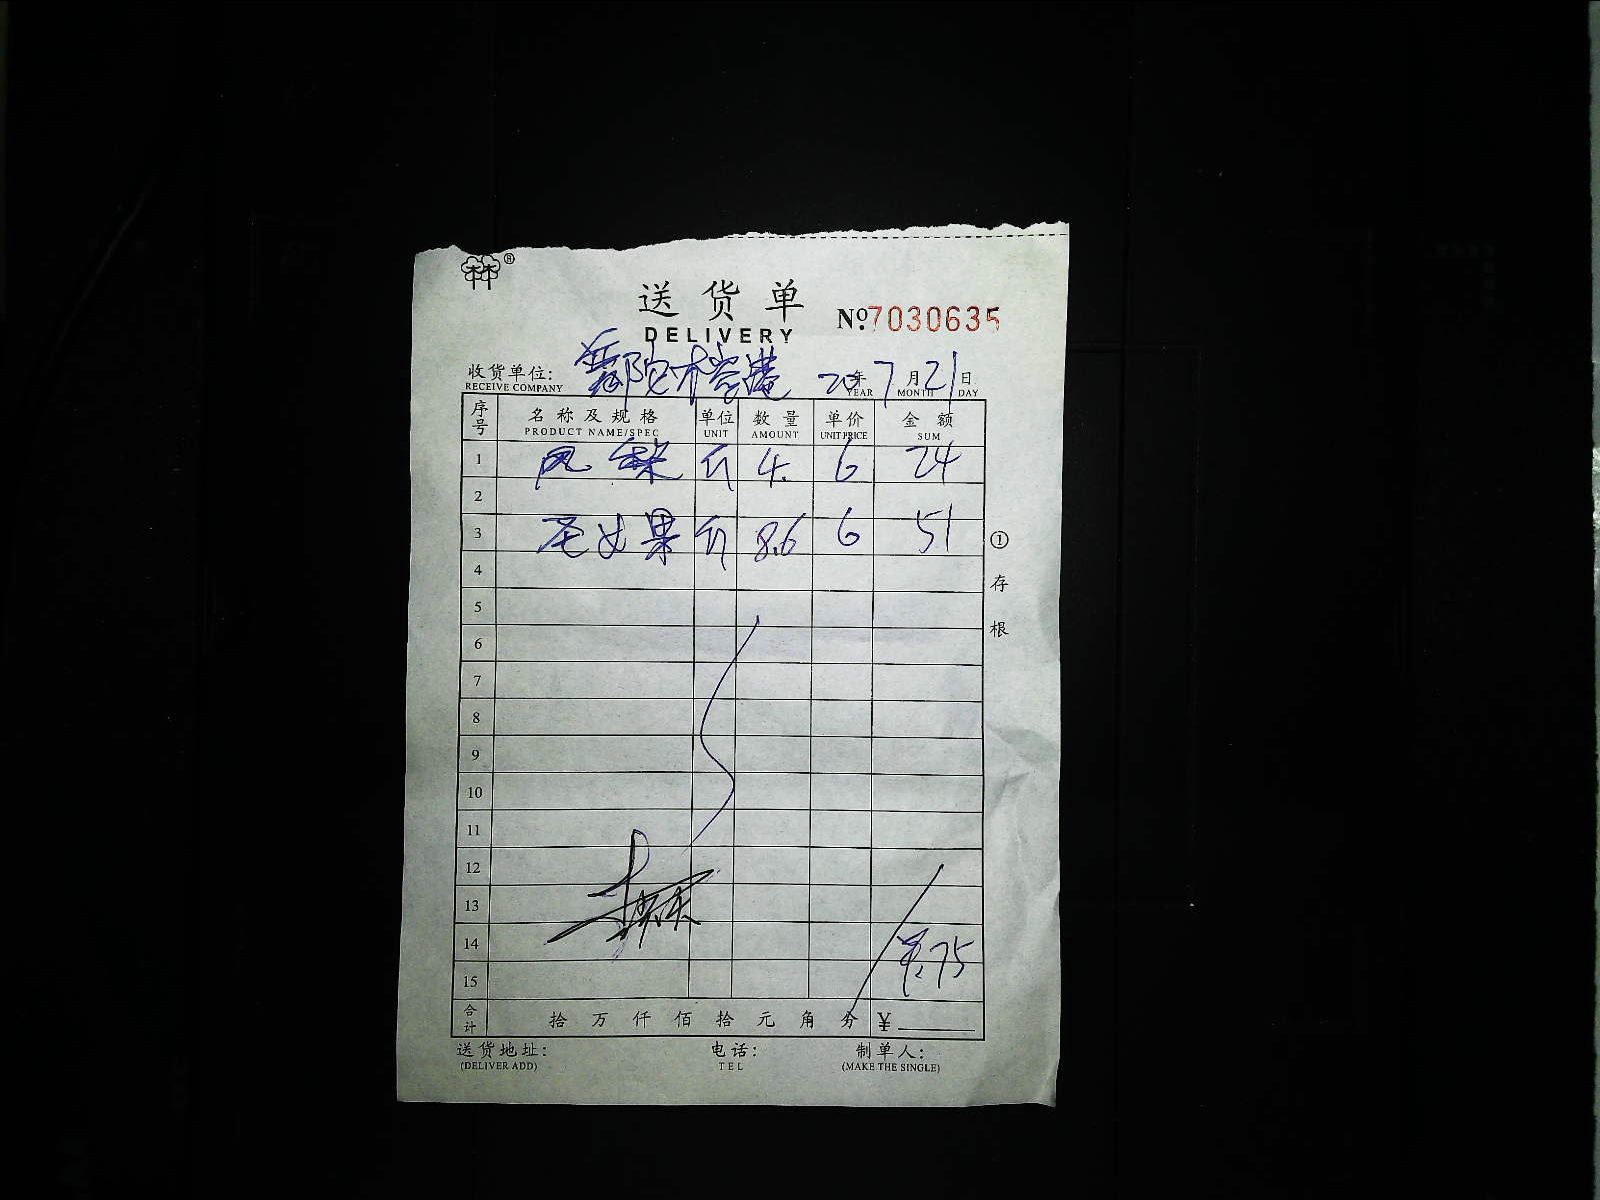 送货单
DELIVERY
№7030635
收货单位:
RECEIVE COMPANY
20年7月21日
YEAR MONTH DAY
序号 名称及规格 单位 数量 单价 金额
PRODUCT NAME/SPEC UNIT AMOUNT UNIT PRICE SUM
1 凤梨 斤 4. 6 24
2
3 圣女果 斤 8.6 6 51
4
5
6
7
8
9
10
11
12
13
14 75
15
合计 拾 万 仟 佰 拾 元 角 分 ¥
①存根
送货地址: 电话: 制单人:
(DELIVER ADD) TEL (MAKE THE SINGLE)